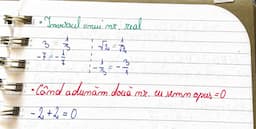 • Inversul unui nr. real
3 = 1/3 √2 = 1/√2
-7 = -1/7 -1/3 = -3/1
• Când adunăm două nr. cu semn opus = 0
-2+2=0